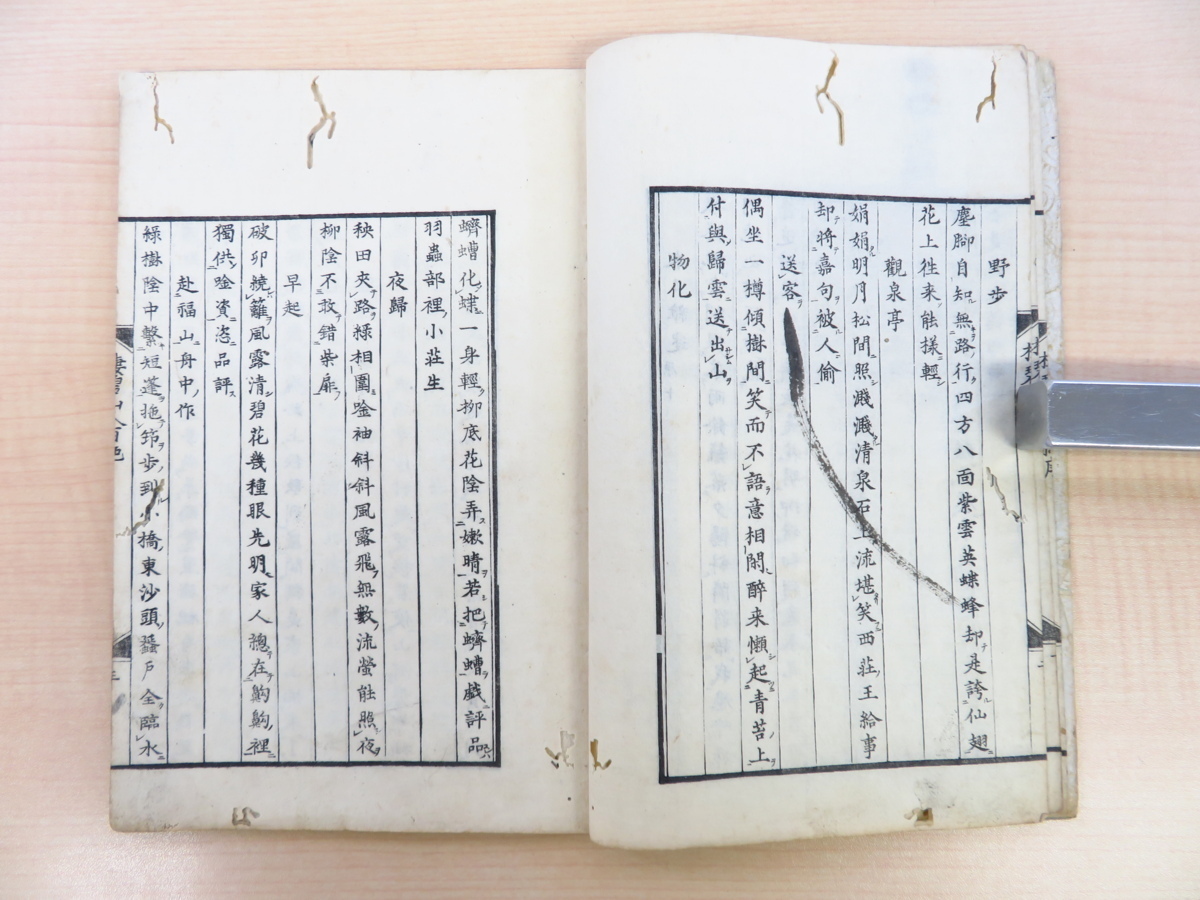 野步
塵腳自知無路行四方八面紫雲英蝶蜂却是誇仙翅
花上往来能樣輕
觀泉亭
娟娟明月松間照濺濺清泉石上流堪笑西莊王給事
却將嘉句被人偷
送客
偶坐一樽傾樹間笑而不語意相閒醉来懶起青苔上
付與歸雲送出山
物化
蠐螬化蝶一身輕柳底花陰弄嫩晴若把蠐螬戲評品
羽蟲部裡小莊生
夜歸
秧田夾路綠相圍唫袖斜斜風露飛無數流螢能照夜
柳陰不敢錯柴扉
早起
破卯繞籬風露清碧花幾種眼先明家人總在齁齁裡
獨供唫資恣品評
赴福山舟中作
綠樹陰中繫短蓬拖筇步到小橋東沙頭蜑戶全臨水